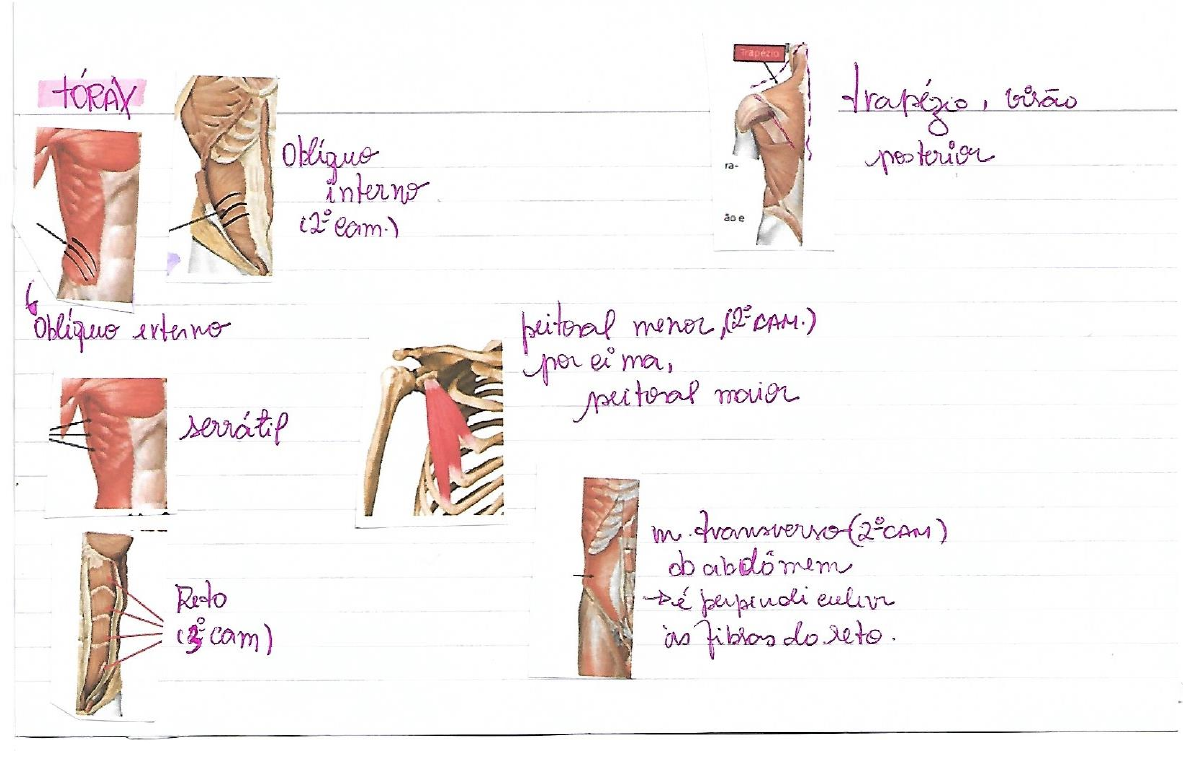 TÓRAX
Oblíquo
interno
(2º cam.)
Oblíquo externo
serrátil
Reto
(3º cam)
Trapézio
ra-
ão e
trapézio, visão
posterior
peitoral menor, (2º CAM.)
por cima,
peitoral maior
m. transverso (2º CAM)
do abdômem
→ é perpendicular
às fibras do reto.